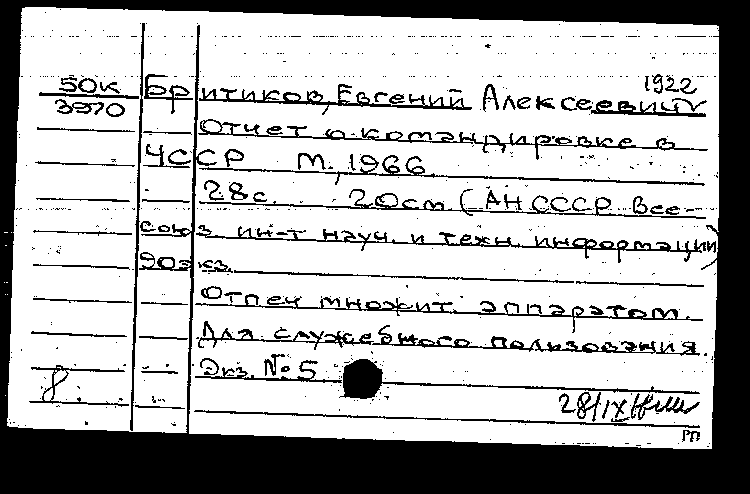 1922
50К Бритиков, Евгений Алексеевич
3970
Отчет о командировке в
ЧССР М., 1966
28с. 20см (АН СССР Все-
союз ин-т науч. и техн. информации)
90экз.
Отпеч множит. аппаратом.
Для служебного пользования.
Экз. №5
8
28/IX
РП